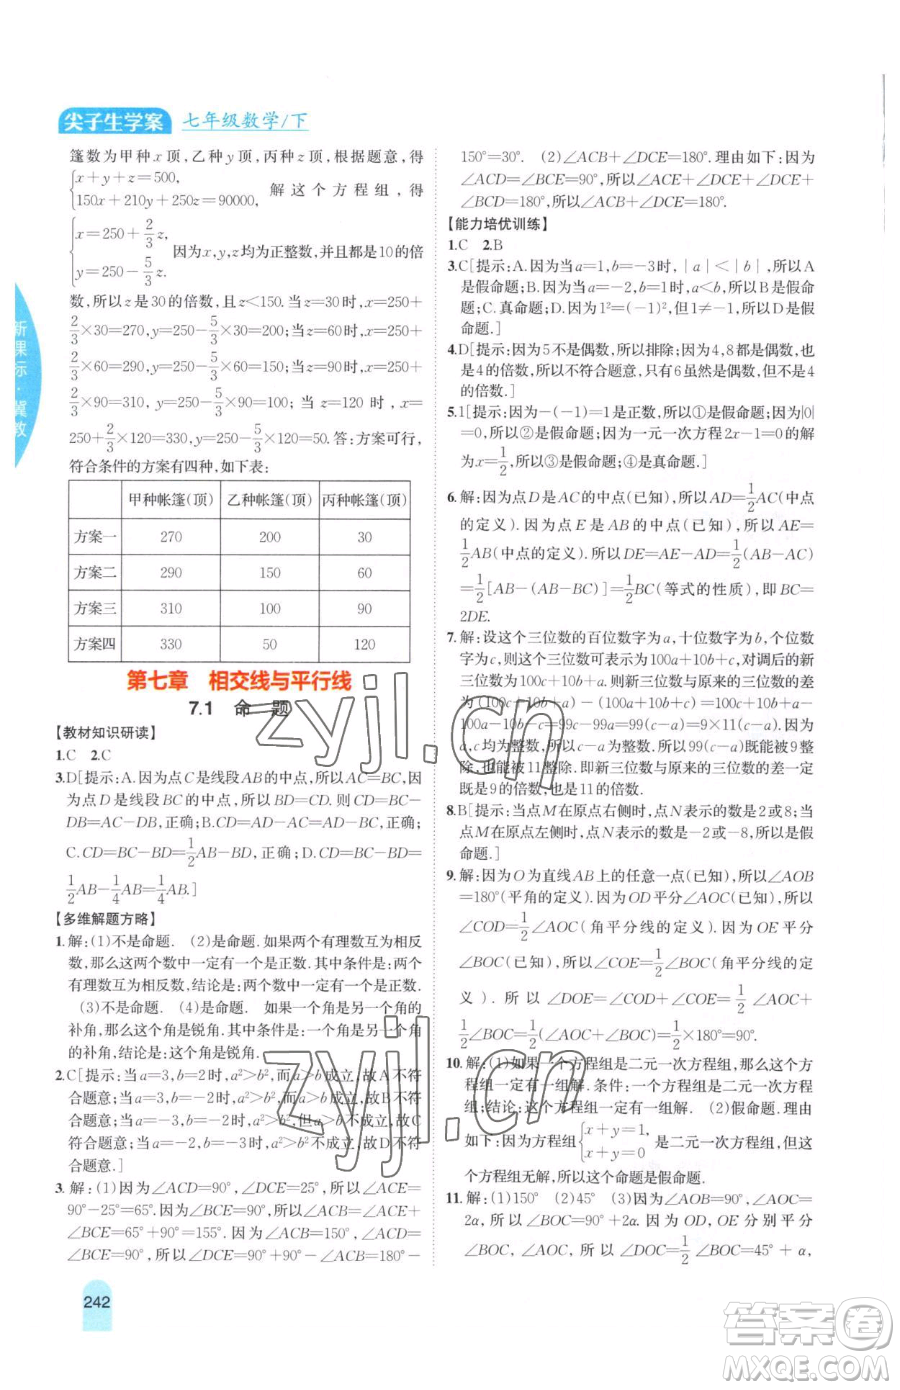 尖子生学案 七年级数学/下
篷数为甲种x顶,乙种y顶,丙种z顶,根据题意,得
{x+y+z=500, 150x+210y+250z=90000. 解这个方程组,得
{x=250+2/3z, y=250-5/3z. 因为x,y,z均为正整数,并且都是10的倍
数,所以z是30的倍数,且z<150.当z=30时,x=250+
2/3×30=270,y=250-5/3×30=200;当z=60时,x=250+
2/3×60=290,y=250-5/3×60=150;当z=90时,x=250+
2/3×90=310,y=250-5/3×90=100;当z=120时,x=
250+2/3×120=330,y=250-5/3×120=50.答:方案可行,
符合条件的方案有四种,如下表:
甲种帐篷(顶) 乙种帐篷(顶) 丙种帐篷(顶)
方案一 270 200 30
方案二 290 150 60
方案三 310 100 90
方案四 330 50 120
第七章 相交线与平行线
7.1 命 题
【教材知识研读】
1.C 2.C
3.D[提示:A.因为点C是线段AB的中点,所以AC=BC.
因为点D是线段BC的中点,所以BD=CD.则CD=BC-
DB=AC-DB,正确;B.CD=AD-AC=AD-BC,正确;
C.CD=BC-BD=1/2AB-BD,正确;D.CD=BC-BD=
1/2AB-1/4AB=1/4AB.]
【多维解题方略】
1.解:(1)不是命题. (2)是命题.如果两个有理数互为相反
数,那么这两个数中一定有一个是负数.其中条件是:两个
有理数互为相反数,结论是:这两个数中一定有一个是负数.
(3)不是命题. (4)是命题. 如果一个角是另一个角的
补角,那么这个角是锐角.其中条件是:一个角是另一个角
的补角,结论是:这个角是锐角.
2.C[提示:当a=3,b=2时,a²>b²,而a>b成立,故A不符
合题意;当a=-3,b=2时,a²>b²,而a>b不成立,故B符
合题意;当a=3,b=-2时,a²>b²,但a>b成立,故C不
符合题意;当a=-2,b=-3时,a²>b²不成立,故D不符
合题意.]
3.解:(1)因为∠ACD=90°,∠DCE=25°,所以∠ACE=
90°-25°=65°.因为∠BCE=90°,所以∠ACB=∠ACE+
∠BCE=65°+90°=155°.因为∠ACB=150°,∠ACD=
∠BCE=90°,所以∠DCE=90°+90°-∠ACB=180°-
242
150°=30°. (2)∠ACB+∠DCE=180°.理由如下:因为
∠ACD=∠BCE=90°,所以∠ACE+∠DCE+∠DCE+
∠BCD=180°,所以∠ACB+∠DCE=180°.
【能力培优训练】
1.C 2.B
3.C[提示:A.因为当a=1,b=-3时,|a|<|b|,所以A
是假命题;B.因为当a=-1时,|a|=-a,所以B是假命
题;C.真命题;D.因为1²=(-1)²,但1≠-1,所以D是假
命题.]
4.D[提示:因为5不是偶数,所以排除;因为4,8都是偶数,也
是4的倍数,所以不符合题意,只有6虽然是偶数,但不是4
的倍数.]
5.1[提示:因为-(-1)=1是正数,所以①是假命题;因为|0|
=0,所以②是假命题;因为一元一次方程2x-1=0的解
为x=1/2,所以③是假命题;④是真命题.]
6.解:因为点D是AC的中点(已知),所以AD=1/2AC(中点
的定义).因为点E是AB的中点(已知),所以AE=
1/2AB(中点的定义).所以DE=AE-AD=1/2(AB-AC)
=1/2[AB-(AB-BC)]=1/2BC(等式的性质),即BC=
2DE.
7.解:设这个三位数的百位数字为a,十位数字为b,个位数
字为c,则原三位数可表示为100a+10b+c,对调后的新
三位数可表示为100c+10b+a,所以新三位数与原三位
数的差为(100c+10b+a)-(100a+10b+c)=100c+10b+a-
100a-10b-c=99c-99a=99(c-a)=9×11(c-a).因为
a,c均为整数,所以c-a为整数,所以99(c-a)既能被9整
除,也能被11整除.即新三位数与原来的三位数的差既
是9的倍数,也是11的倍数.
8.B[提示:当点M在原点右侧时,点N表示的数是2或8;当
点M在原点左侧时,点N表示的数是-2或-8,所以是假
命题.]
9.解:因为O为直线AB上的任意一点(已知),所以∠AOB
=180°(平角的定义).因为OD平分∠AOC(已知),所以
∠COD=1/2∠AOC(角平分线的定义).因为OE平分
∠BOC(已知),所以∠COE=1/2∠BOC(角平分线的定
义).所以∠DOE=∠COD+∠COE=1/2∠AOC+
1/2∠BOC=1/2(∠AOC+∠BOC)=1/2×180°=90°.
10.解:(1)如果一个方程组是二元一次方程组,那么这个方
程组一定有一组解.条件:一个方程组是二元一次方程
组;结论:这个方程组一定有一组解. (2)假命题.理由
如下:因为方程组{x+y=1, x+y=0是二元一次方程组,但这
个方程组无解,所以这个命题是假命题.
11.解:(1)150° (2)45° (3)因为∠AOB=90°,∠AOC=
2α,所以∠BOC=90°+2α.因为OD,OE分别平分
∠BOC,∠AOC,所以∠DOC=1/2∠BOC=45°+α,
新课标·冀教
zyjl.cn
zyjl.cn
答案圈
MXQE.COM